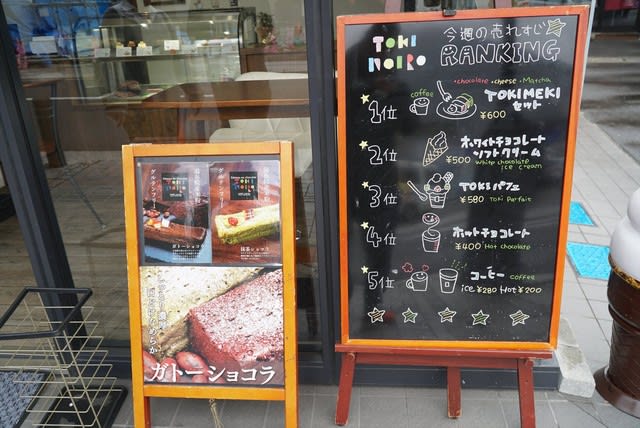 TOKI
NOIRO
今週の売れすじ
RANKING
・chocolate ・cheese ・Matcha
1位
coffee
TOKIMEKI
セット
¥600
2位
ホワイトチョコレート
ソフトクリーム
¥500
white chocolate
ice cream
3位
TOKIパフェ
¥580 Toki Parfait
4位
ホットチョコレート
¥400 Hot chocolate
5位
コーヒー coffee
ice ¥280 Hot ¥200
グルテンフリー
ガトーショコラ
グルテンフリー
抹茶ショコラ
ガトーショコラ